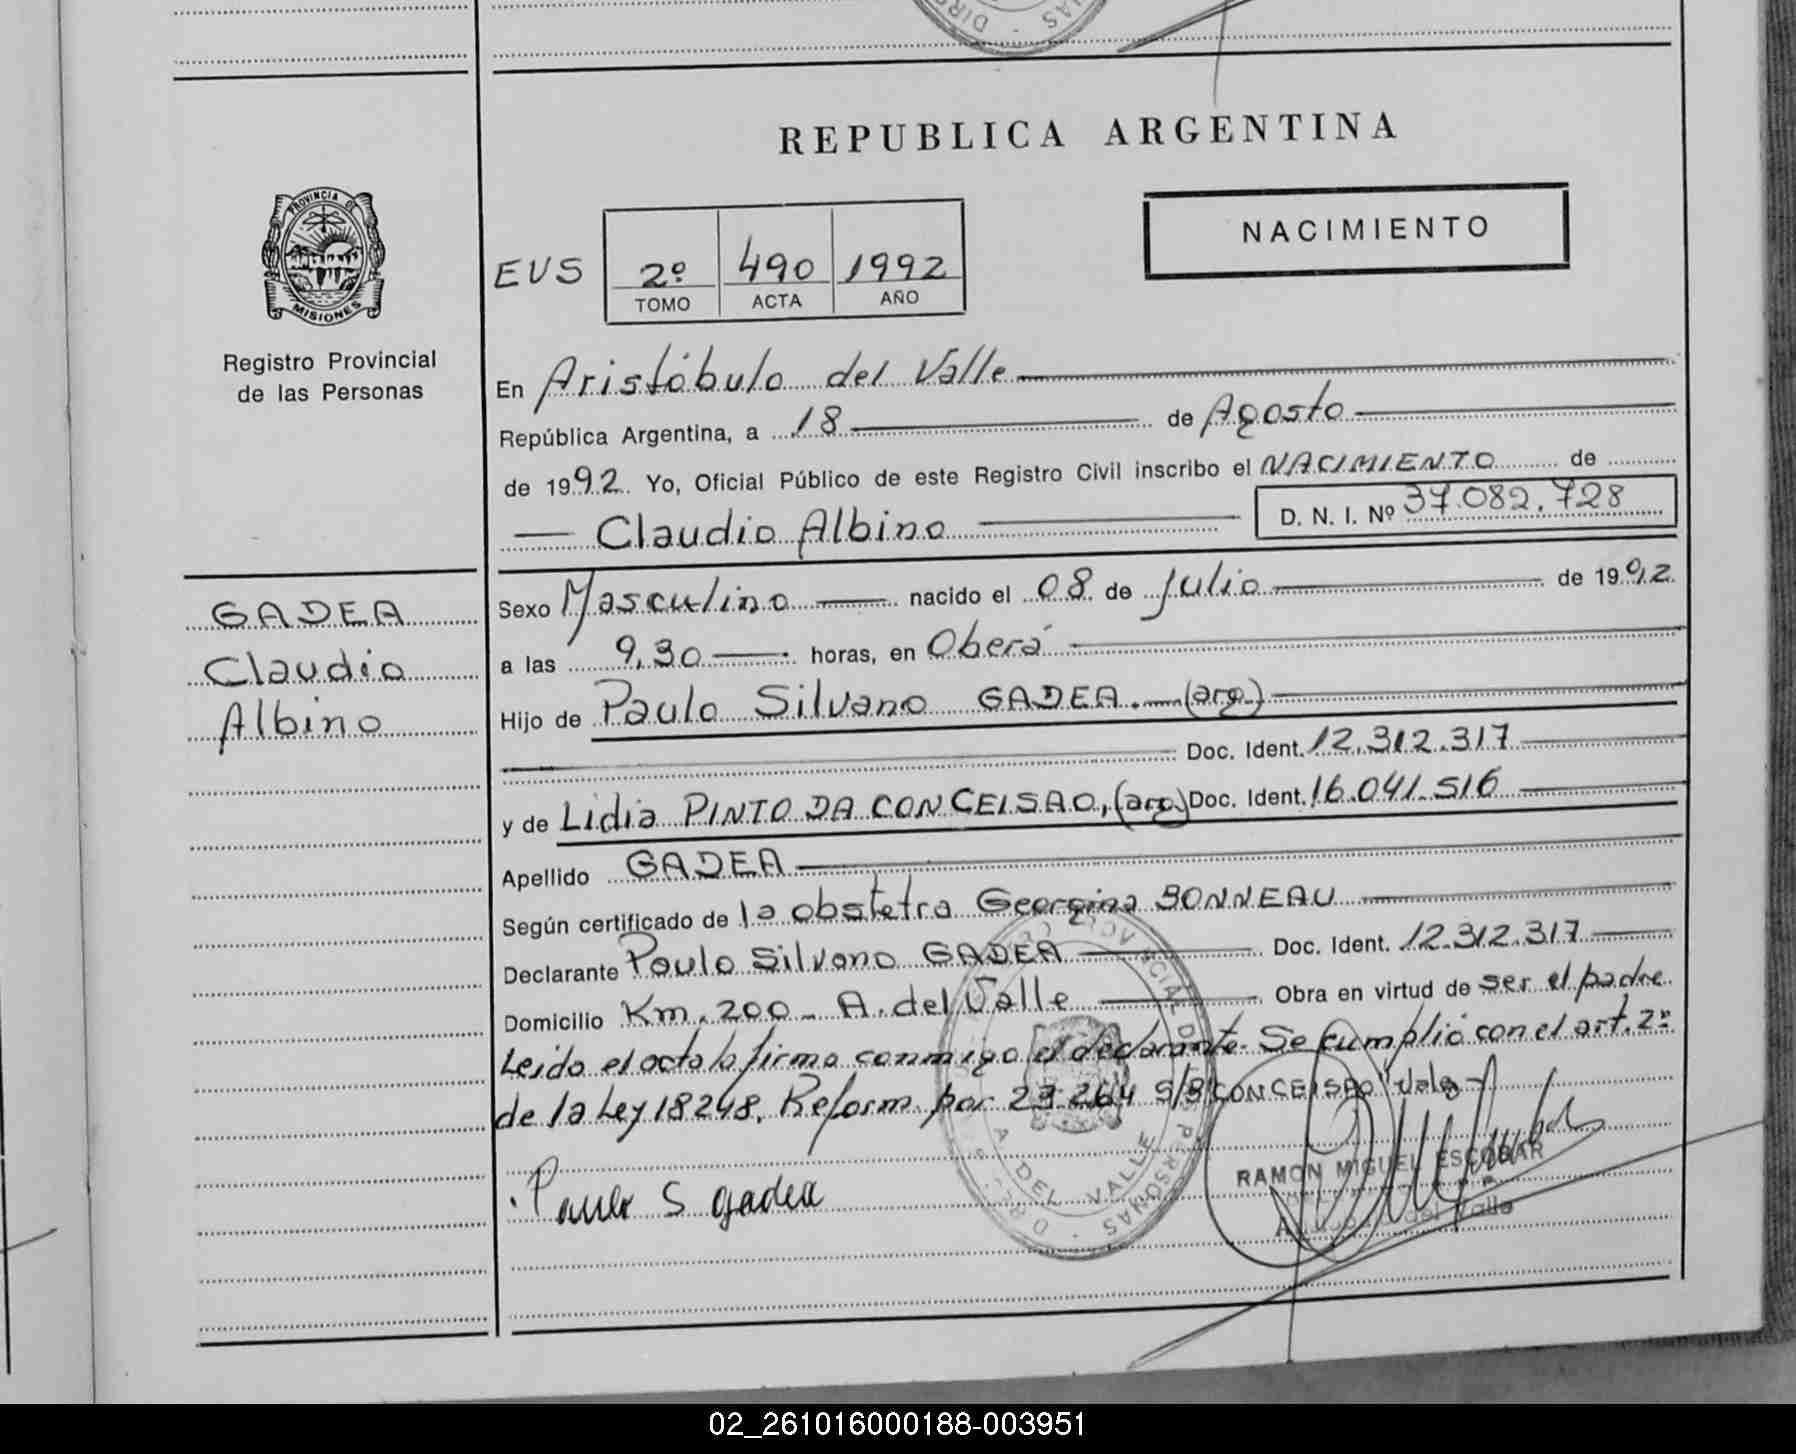 REPUBLICA ARGENTINA
NACIMIENTO
PROVINCIA DE
MISIONES
Registro Provincial
de las Personas
EUS 2º 490 1992
TOMO ACTA AÑO
En Aristóbulo del Valle
República Argentina, a 18 de Agosto
de 1992. Yo, Oficial Público de este Registro Civil inscribo el NACIMIENTO de
Claudio Albino D. N. I. Nº 37.082.728
GADEA
Claudio
Albino
Sexo Masculino nacido el 08 de Julio de 1992
a las 9,30 horas, en Oberá
Hijo de Paulo Silvano GADEA. (arg.)
Doc. Ident. 12.312.317
y de Lidia PINTO DA CONCEISAO, (arg.) Doc. Ident. 16.041.516
Apellido GADEA
Según certificado de la obstetra Georgina BONNEAU
Declarante Paulo Silvano GADEA Doc. Ident. 12.312.317
Domicilio Km. 200 - A. del Valle Obra en virtud de ser el padre
Leida el acta la firma conmigo el declarante. Se cumplió con el art. 2º
de la Ley 18248. Reform. por 23.264 S/B "CONCEISAO" Vale
Paulo S gadea
RAMON MIGUEL ESCOBAR
A. DEL VALLE
PERSONAS
02_261016000188-003951